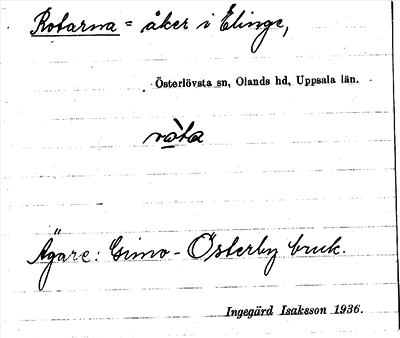 Rotarna = åker i Elinge,
Österlövsta sn, Olands hd, Uppsala län.
ròta
Ägare: Gimo-Österby bruk.
Ingegärd Isaksson 1936.